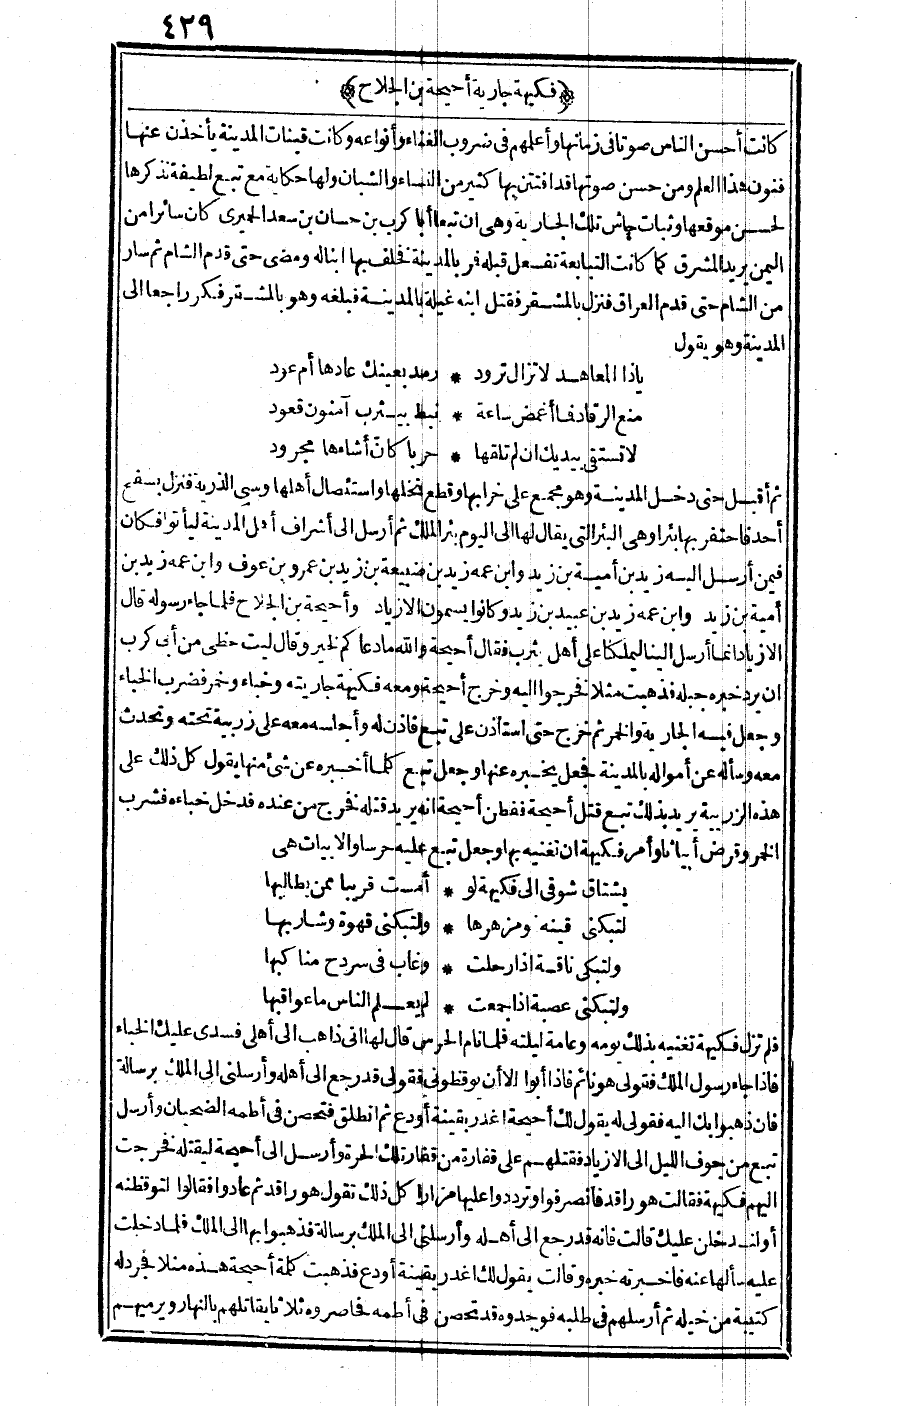 ٤٣٩
﴿فكيهة جارية أحيحة بن الجلاح﴾
كانت أحسن الناس صوتا فى زمانها وأعلمهم فى ضروب الغناء وأنواعه وكانت قينات المدينة يأخذن عنها
فنون هذا العلم ومن حسن صوتها قد افتتن بها كثير من النساء والشبان ولها حكاية مع تبع لطيفة نذكرها
لحسن موقعها وثبات جاش تلك الجارية وهى ان تبعا أبا كرب بن حسان بن سعد الحميرى كان سائرا من
اليمن يريد المشرق كما كانت التبابعة تفعل قبله فمر بالمدينة فخلف بها ابنا له ومضى حتى قدم الشام ثم سار
من الشام حتى قدم العراق فنزل بالمشقر فقتل ابنه غيلة بالمدينة فبلغه وهو بالمشقر فكر راجعا الى
المدينة وهو يقول
ياذا المعاهد لاتزال ترود * رمد بعينك عادها أم عود
منع الرقاد فما أغمض ساعة * نبط بيثرب آمنون قعود
لا تستقى بيديك ان لم تلقها * حربا كأن أشاءها مجرود
ثم أقبل حتى دخل المدينة وهو مجمع على خرابها وقطع نخلها واستئصال أهلها وسبى الذرية فنزل بسفح
أحد فاحتفر بها بئرا وهى البئر التى يقال لها الى اليوم بئر الملك ثم أرسل الى أشراف أهل المدينة ليأتوا فكان
فيمن أرسل اليه زيد بن أمية بن زيد وابن عمه زيد بن ضبيعة بن زيد بن عمرو بن عوف وابن عمه زيد بن
أمية بن زيد وابن عمه زيد بن عبيد بن زيد وكانوا يسمون الازياد وأحيحة بن الجلاح فلما جاء رسوله قال
الازياد انما أرسل الينا ليملكنا على أهل يثرب فقال أحيحة والله ما دعاكم لخير وقال ليت حظى من أبى كرب
ان يرد خيره جبله فذهبت مثلا فخرجوا اليه وخرج أحيحة ومعه فكيهة جاريته وخباء وخمر فضرب الخباء
وجعل فيه الجارية والخمر ثم خرج حتى استأذن على تبع فاذن له وأجلسه معه على زربية تحته وتحدث
معه وسأله عن أمواله بالمدينة فجعل يخبره عنها وجعل تبع كلما أخبره عن شئ منها يقول كل ذلك على
هذه الزربية يريد بذلك تبع قتل أحيحة ففطن أحيحة انه يريد قتله فخرج من عنده فدخل خباءه فشرب
الخمر وقرض أبياتا وأمر فكيهة ان تغنيه بها وجعل تبع عليه حرسا والابيات هى
يشتاق شوقى الى فكيهة لو * أمست قريبا ممن يطالبها
لتبكنى قينة ومزهرها * ولتبكنى قهوة وشاربها
ولتبكى ناقة اذا رحلت * وغاب فى سردح مناكبها
ولتبكنى عصبة اذا جمعت * لم يعلم الناس ما عواقبها
فلم تزل فكيهة تغنيه بذلك يومه وعامة ليلته فلما نام الحرس قال لها انى ذاهب الى أهلى فسدى عليك الخباء
فاذا جاء رسول الملك فقولى هو نائم فاذا أبوا الا أن يوقظونى فقولى قد رجع الى أهله وأرسلنى الى الملك برسالة
فان ذهبوا بك اليه فقولى له يقول لك أحيحة اغدر بقينة أودع ثم انطلق فتحصن فى أطمه الضحيان وأرسل
تبع من جوف الليل الى الازياد فقتلهم على فقارة من فقار تلك الحرة وأرسل الى أحيحة ليقتله فخرجت
اليهم فكيهة فقالت هو راقد فانصرفوا وترددوا عليها مرارا كل ذلك تقول هو راقد ثم عادوا فقالوا لتوقظنه
أو لندخلن عليك قالت فانه قد رجع الى أهله وأرسلنى الى الملك برسالة فذهبوا بها الى الملك فلما دخلت
عليه سألها عنه فاخبرته خبره وقالت يقول لك اغدر بقينة أودع فذهبت كلمة أحيحة هذه مثلا فجرد له
كتيبة من خيله ثم أرسلهم فى طلبه فوجدوه قد تحصن فى أطمه فحاصروه ثلاثا يقاتلهم بالنهار ويرميهم